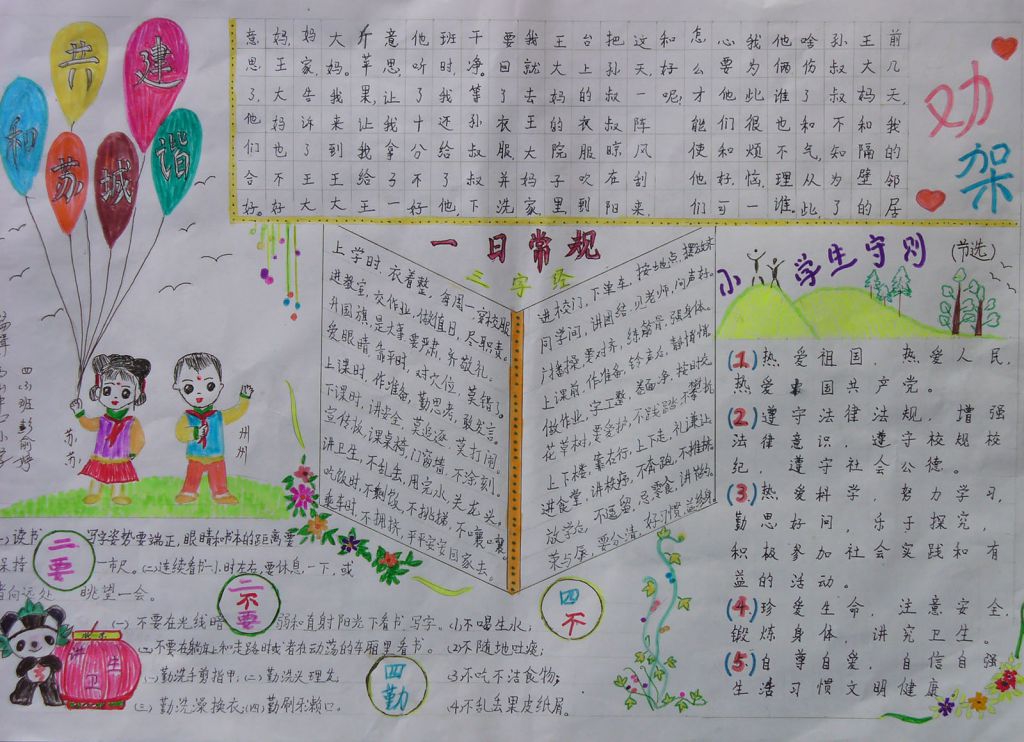 共建
和苏城谐
劝架
前几天,我的邻居
王大妈和隔壁的
孙叔叔不知为了
啥伤了和气,从此,
他俩谁也不理谁。
我为此很烦恼,一
心要他们和好,可
怎么才能使他们
和好呢?
这天,一阵风刮来,
把孙叔叔晾在阳
台上的衣服吹到
王大妈的院子里
我就去王大妈家
要回了衣服,并洗
干净。等孙叔叔下
班时,我还给了他,
他听了十分不好
意思,让我拿了一
斤苹果,让我给王
大妈。我来到王大
妈家告诉了王大
妈王大妈也不好
意思了,他们合好。
一日常规
三字经
上学时,衣着整,每周一穿校服
进教室,交作业,做值日,尽职责。
升国旗,是大事,要严肃,齐敬礼。
爱眼睛,靠平时,对穴位,莫错了。
上课时,作准备,勤思考,敢发言。
下课时,讲安全,莫追逐,莫打闹。
宣传板,课桌椅,门窗墙,不涂刻。
讲卫生,不乱丢,用完水,关龙头,
吃饭时,不剩饭,不挑梯,不嚷嚷。
乘车时,不拥挤,平平安安回家去。
进校门,下单车,按地点,摆放齐
同学间,讲团结,见老师,问声好。
广播操,要对齐,练筋骨,强身体。
上课前,作准备,铃声后,静悄悄,
做作业,字工整,卷面净,按时交
花草树,要爱护,不践踏,不攀折
上下楼,靠右行,上下走,礼谦让,
进食堂,讲秩序,不奔跑,不推挤
放学后,不逗留,忌零食,讲节约
荣与辱,要分清,好习惯,益终身
小学生守则(节选)
(1)热爱祖国,热爱人民,
热爱中国共产党。
(2)遵守法律法规,增强
法律意识,遵守校规校
纪,遵守社会公德。
(3)热爱科学,努力学习,
勤思好问,乐于探究,
积极参加社会实践和有
益的活动。
(4)珍爱生命,注意安全,
锻炼身体,讲究卫生。
(5)自尊自爱,自信自强
生活习惯文明健康
四(3)班彭俞婷
苏苏
州州
二要
(一)读书 写字姿势要端正,眼睛和书本的距离要
保持一市尺。(二)连续看书一小时左右,要休息一下,或
者向远处眺望一会。
二不要
(一)不要在光线暗弱和直射阳光下看书、写字。
(二)不要在躺在床上和走路时或者在动荡的车厢里看书。
四勤
(一)勤洗手剪指甲;(二)勤洗头理发
(三)勤洗澡换衣;(四)勤刷牙漱口。
四不
(1)不喝生水;
(2)不随地吐痰;
(3)不吃不洁食物;
(4)不乱丢果皮纸屑。
讲卫生